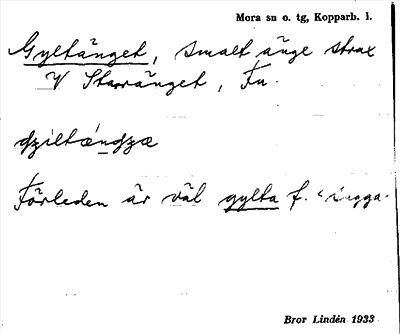 Mora sn o. tg, Kopparb. l.
Gyltänget, smalt änge strax
V Starränget, Fu.
dziltæ´ndzæ
Förleden är väl gylta f.
Bror Lindén 1933